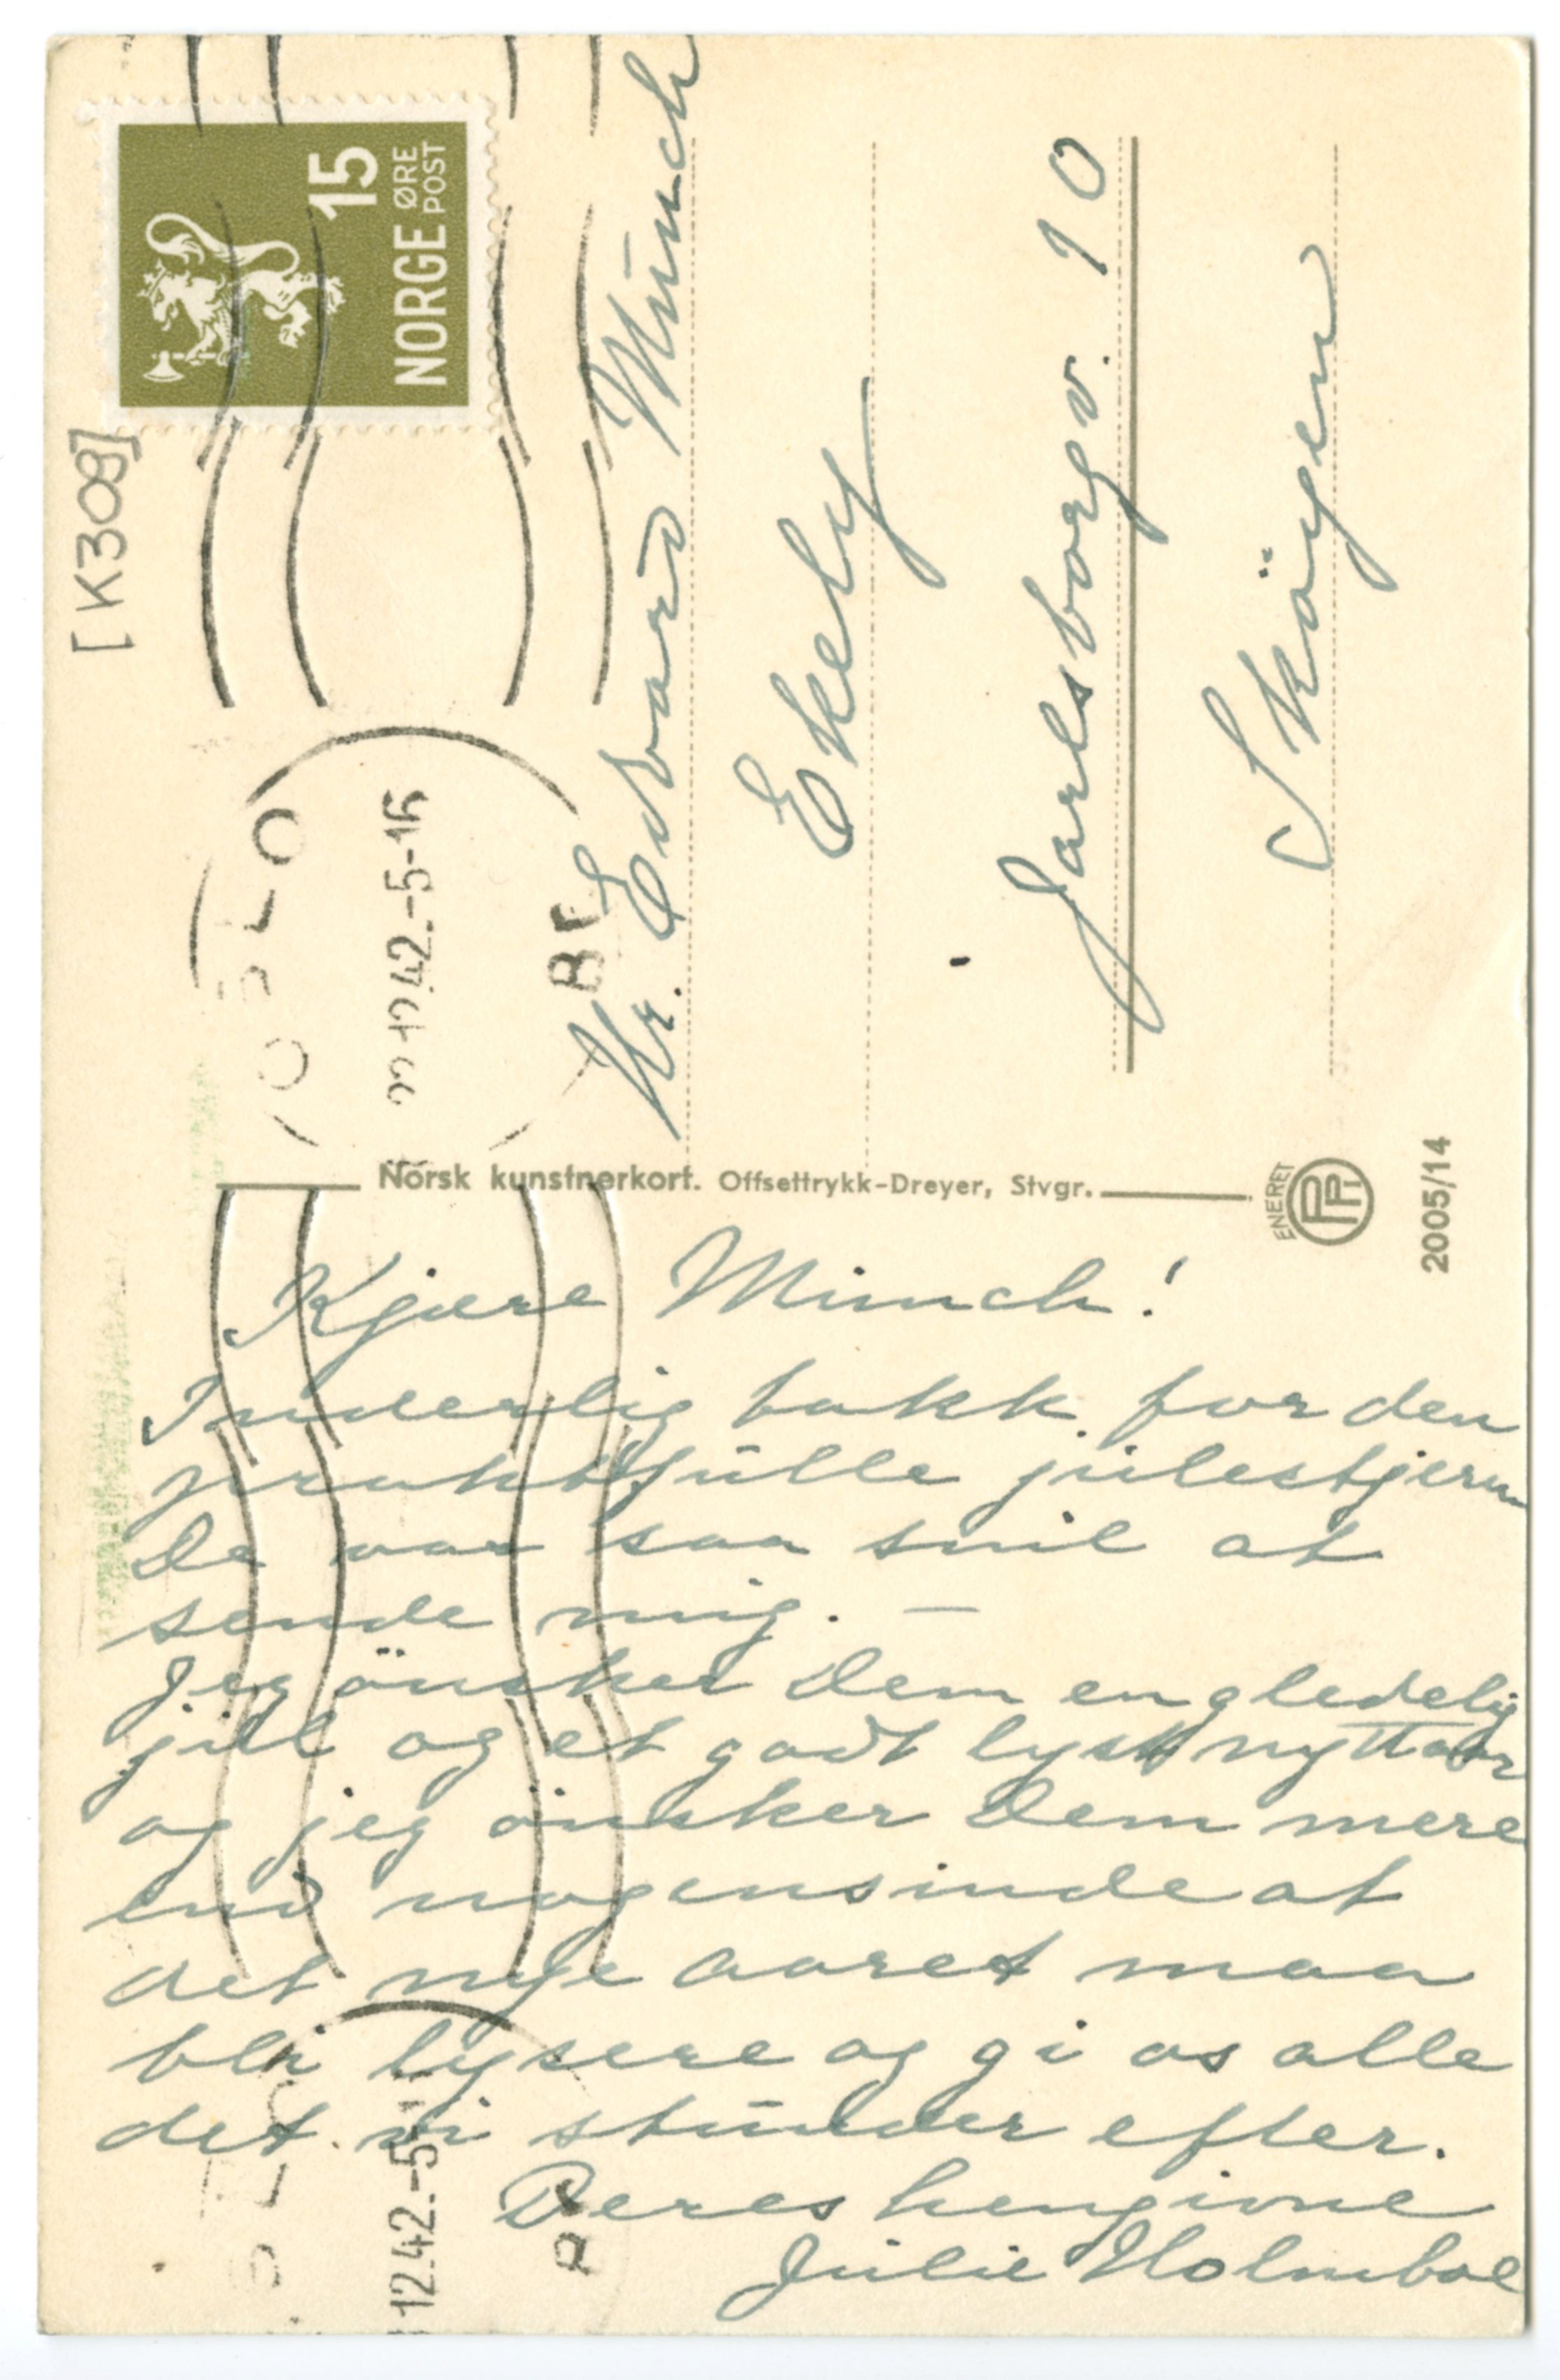 [K308]
15
ØRE
POST
NORGE
OSLO
12.42.-5-16
Hr. Edvard Munch
Ekely
Jarlsborgv. 10
Skäyen
Norsk kunstnerkort. Offsettrykk-Dreyer, Stvgr.
ENERET
PPI
2005/14
Kjære Munch!
Inderlig takk for den
praktfulle julestjerne
De var saa snil at
sende mig. —
Jeg önsker Dem en gledelig
jul og et godt lyst nyttaar
og jeg önsker Dem mere
end nogensinde at
det nye aaret maa
bli lysere og gi os alle
det vi stunder efter.
Deres hengivne
Julie Holmboe
12.42.-5